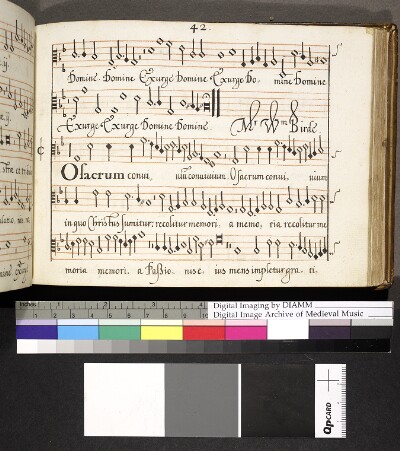 42.
Domine. Domine Exurge Domine Exurge Do, mine Domine
Exurge Exurge Domine Domine. Mr Wm Birde
O sacrum convi, viū convivium O sacrum convi, vium
in quo Christus sumitur, recolitur memori, a memo, ria recolitur me
moria memori, a Passio, nis e, ius mens impletur gra, ti
Inches 1 2 3 4
Digital Imaging by DIAMM
Digital Image Archive of Medieval Music
QPCARD